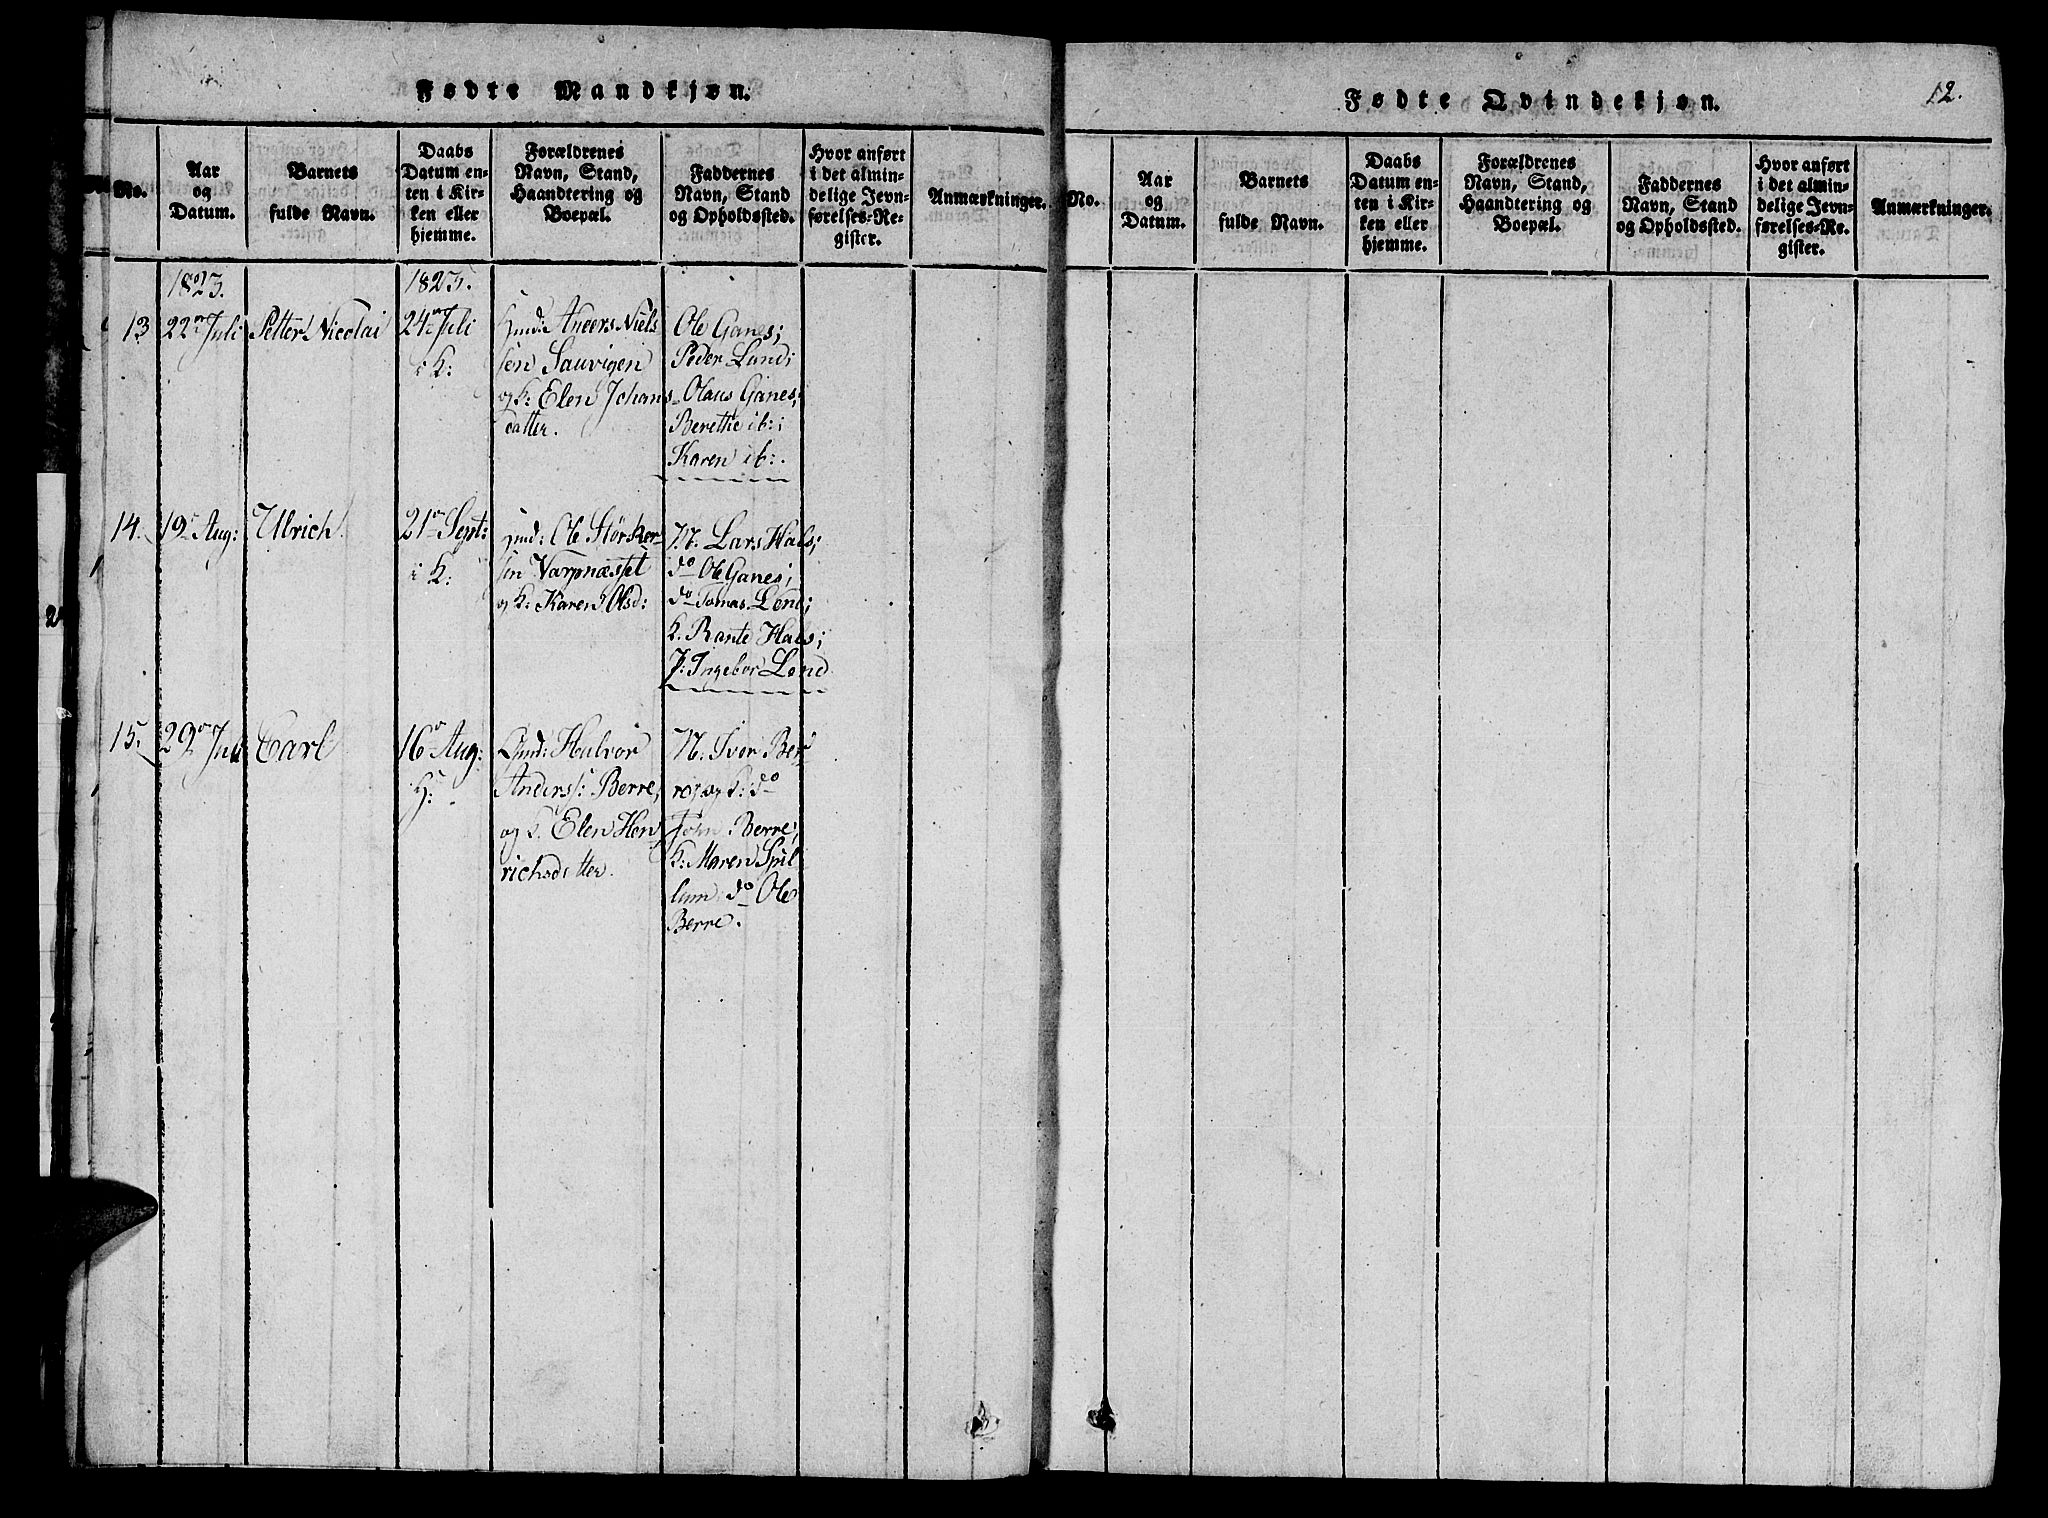 Fødte Mandkjøn.
No.
Aar
og
Datum.
Barnets
fulde Navn.
Daabs
Datum en-
ten i Kir-
ken eller
hjemme.
Forældrenes
Navn, Stand,
Haandtering og
Boepæl.
Faddernes
Navn, Stand
og Opholdssted.
Hvor anført
i det almin-
delige Jevn-
førelses-Re-
gister.
Anmærkninger.
1823.
13
22 Juli
Petter Nicolai
1823.
24 Juli
i K:
Anders Niels
sen Sauvigen
og K: Elen Johans
datter.
Ole Ganes;
Peder Lund;
Olaus Ganes;
Berethe ib:;
Karen ib:.
14.
19 Aug:
Ulrich
21 Sept:
i K:
Ole Størker
sen Varpnæsset
og K: Karen Olsd:
M. Lars Hals;
do Ole Ganes;
do Tomas Lend;
K. Rante Hals;
P: Ingebor Lend
15.
29 Juli
Carl
16 Aug:
H:
Gmd: Halvor
Anderss: Berre,
og K. Elen Hen
richsdatter.
M. Iver Ber
re og K: do
John Berre;
K: Maren Spil
lum do Ole
Berre.
Fødte Qvindekjøn.
12.
No.
Aar
og
Datum.
Barnets
fulde Navn.
Daabs
Datum en-
ten i Kir-
ken eller
hjemme.
Forældrenes
Navn, Stand,
Haandtering og
Boepæl.
Faddernes
Navn, Stand
og Opholdssted.
Hvor anført
i det almin-
delige Jevn-
førelses-Re-
gister.
Anmærkninger.